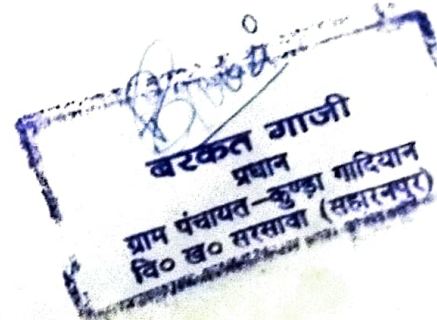 बरकत गाजी
प्रधान
ग्राम पंचायत-कुण्डा गादियान
वि० ख० सरसावा (सहारनपुर)